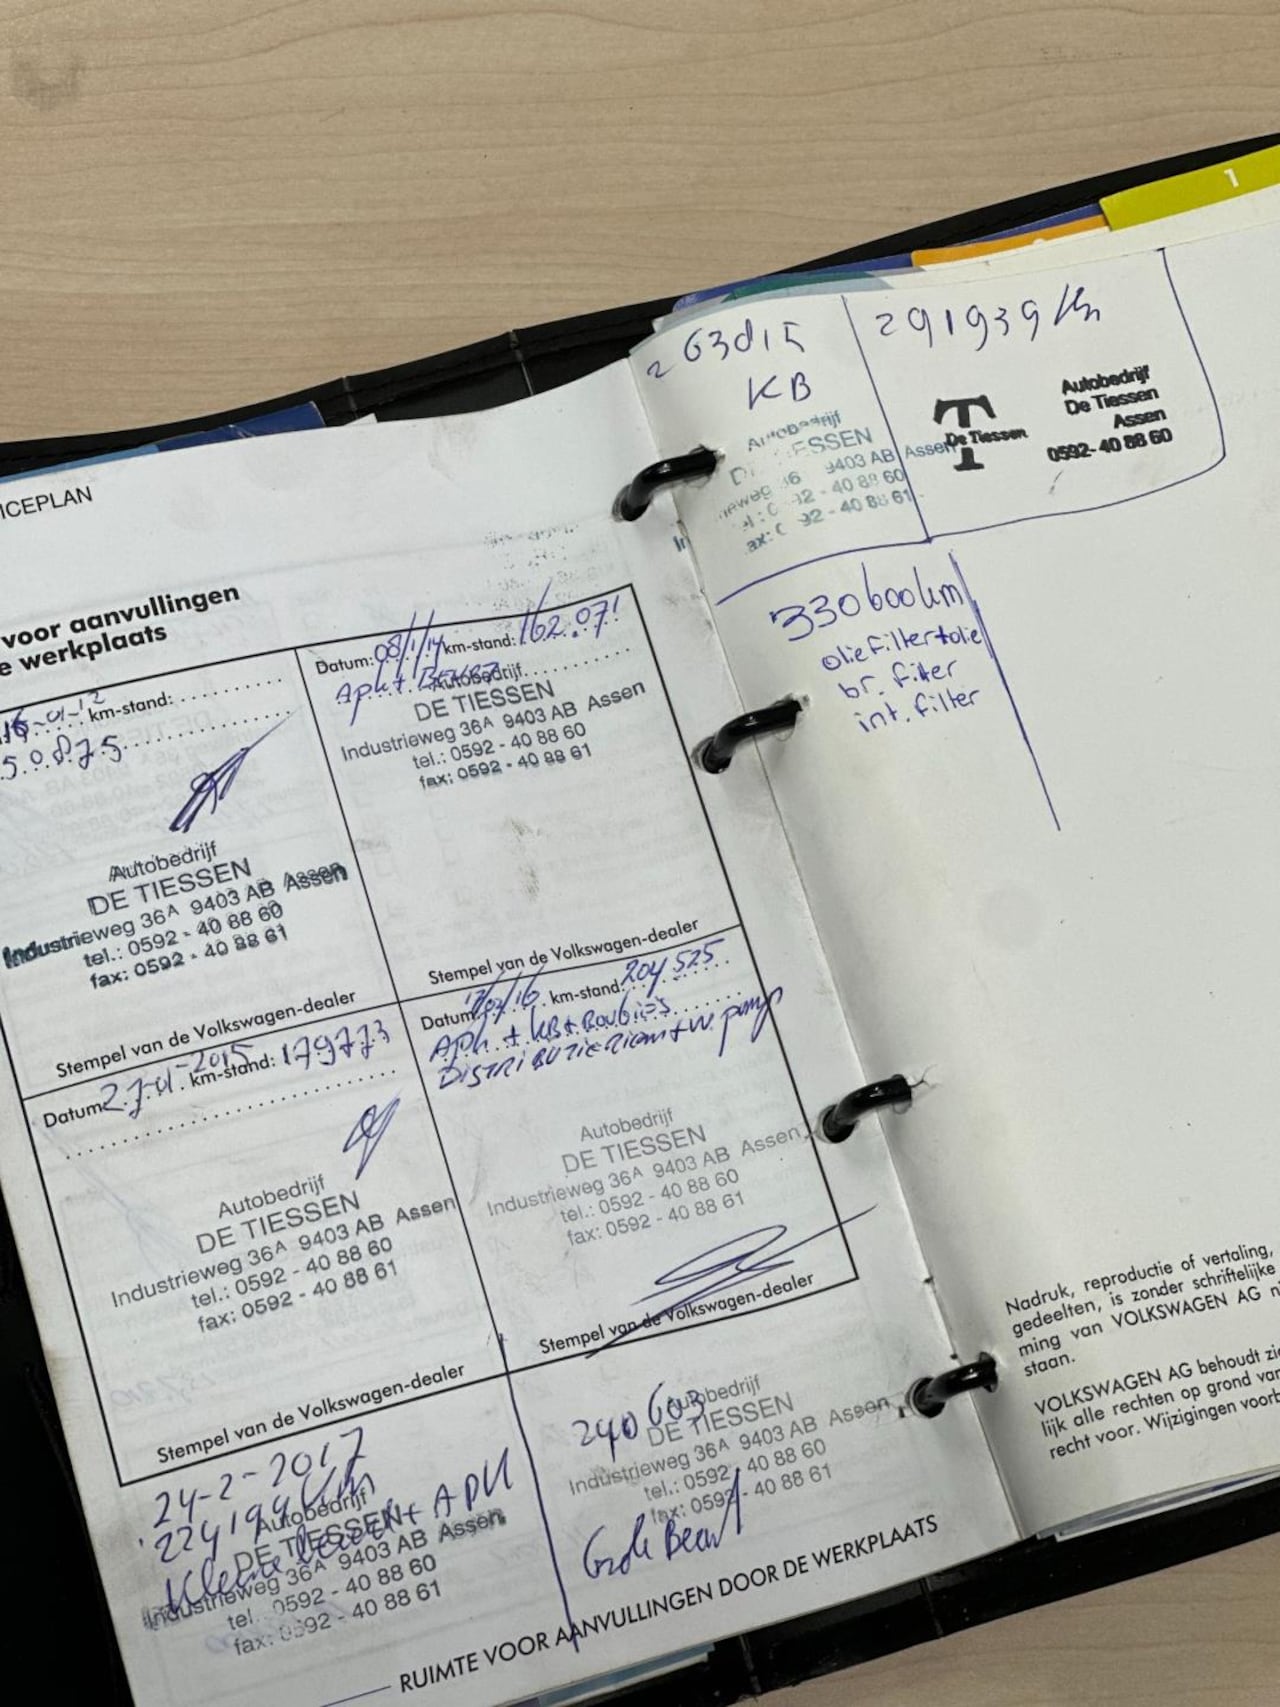 ICEPLAN
voor aanvullingen
e werkplaats
16-01-12 km-stand:
50875
Autobedrijf
DE TIESSEN
Industrieweg 36A 9403 AB Assen
tel.: 0592 - 40 88 60
fax: 0592 - 40 88 61
Stempel van de Volkswagen-dealer
Datum: 08/1/14 km-stand: 162.071
APK + Beurt
Autobedrijf
DE TIESSEN
Industrieweg 36A 9403 AB Assen
tel.: 0592 - 40 88 60
fax: 0592 - 40 88 61
Stempel van de Volkswagen-dealer
Datum 27-01-2015 km-stand: 179773
Autobedrijf
DE TIESSEN
Industrieweg 36A 9403 AB Assen
tel.: 0592 - 40 88 60
fax: 0592 - 40 88 61
Stempel van de Volkswagen-dealer
Datum /16 km-stand: 204525
APK + KB + Bougies
DISTRIBUTIERiem + w. pomp
Autobedrijf
DE TIESSEN
Industrieweg 36A 9403 AB Assen
tel.: 0592 - 40 88 60
fax: 0592 - 40 88 61
Stempel van de Volkswagen-dealer
24-2-2017
224194 km
Kleine beurt + APK
Autobedrijf
DE TIESSEN
Industrieweg 36A 9403 AB Assen
tel.: 0592 - 40 88 60
fax: 0592 - 40 88 61
240603
Autobedrijf
DE TIESSEN
Industrieweg 36A 9403 AB Assen
tel.: 0592 - 40 88 60
fax: 0592 - 40 88 61
Grote Beurt
RUIMTE VOOR AANVULLINGEN DOOR DE WERKPLAATS
263015
KB
Autobedrijf
DE TIESSEN
ieweg 36 9403 AB Assen
tel.: 0592 - 40 88 60
fax: 0592 - 40 88 61
291939 km
De Tiessen
Autobedrijf
De Tiessen
Assen
0592- 40 88 60
330600km
oliefilter+olie
br. filter
int. filter
Nadruk, reproductie of vertaling,
gedeelten, is zonder schriftelijke
ming van VOLKSWAGEN AG n
staan.
VOLKSWAGEN AG behoudt zi
lijk alle rechten op grond van
recht voor. Wijzigingen voorb
1